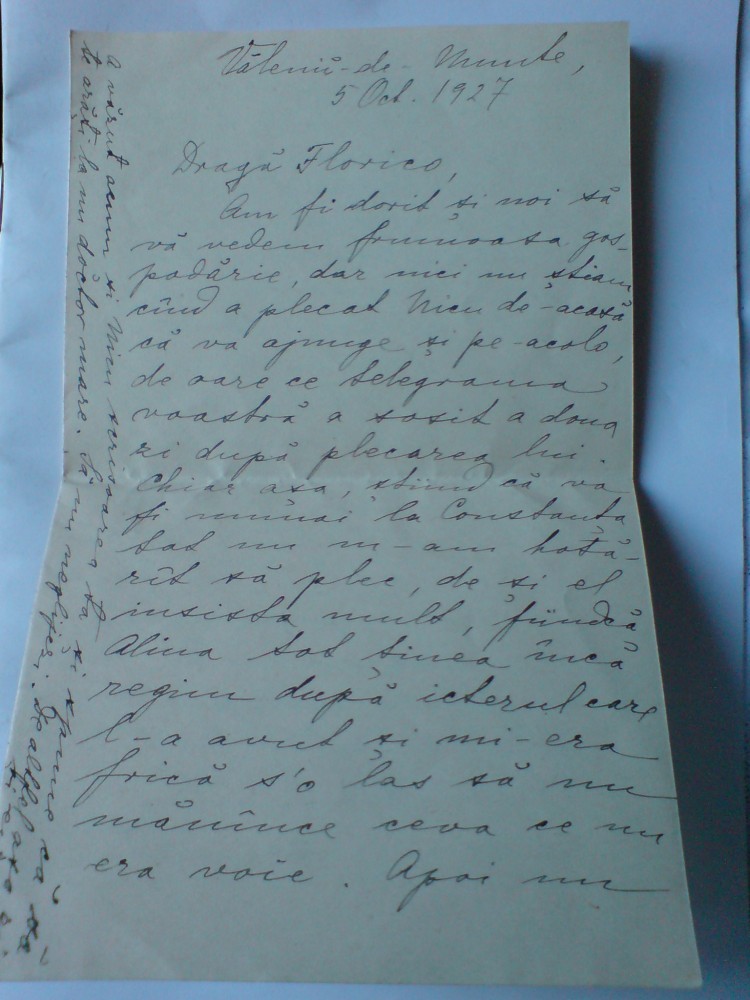 Vălenii-de-Munte,
5 Oct. 1927
Dragă Florico,
Am fi dorit și noi să
vă vedem frumoasa gos-
podărie, dar nici nu știam
cînd a plecat Nicu de-acasă
că va ajunge și pe-acolo,
de oare ce telegrama
voastră a sosit a doua
zi după plecarea lui.
Chiar așa, știind că va
fi numai la Constanța
tot nu m-am hotă-
rît să plec, de și el
insista mult, fiindcă
Alina tot ținea încă
regim după icterul care
l-a avut și mi-era
frică s'o las să nu
mănînce ceva ce nu
era voie. Apoi nu
A văzut acum și Nicu scrisoarea ta și spune că să
te arăți la un doctor mare. Să nu neglijezi. De altfel